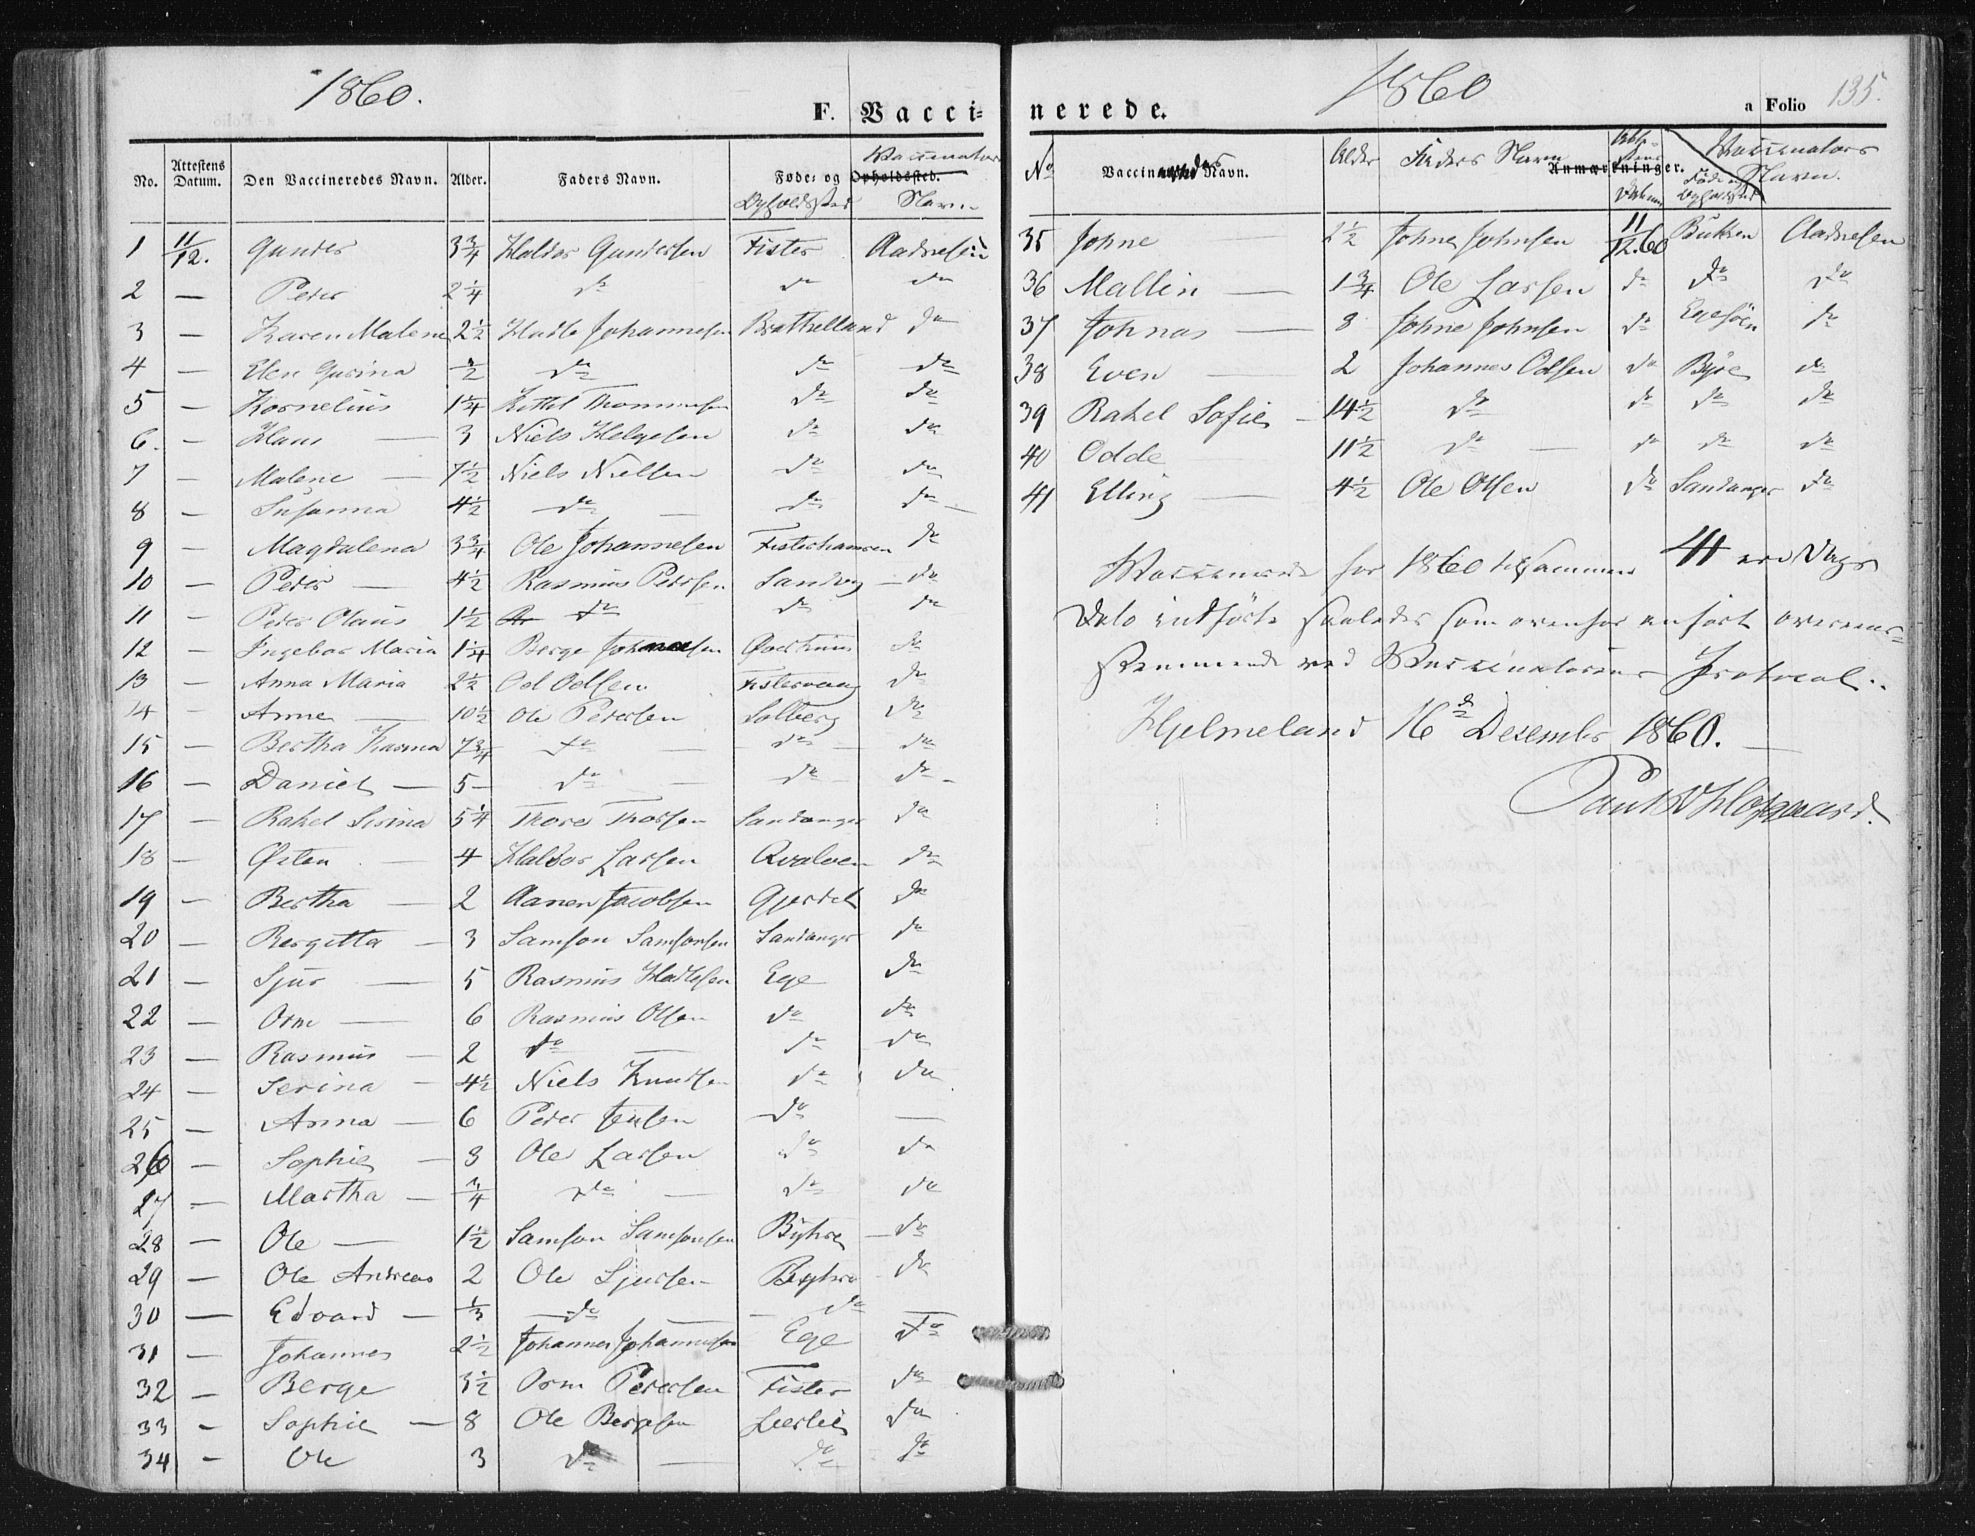 1860.
F. Vacci-
No. Attestens Datum. Den Vaccineredes Navn. Alder. Faders Navn. Føde- og Opholdssted. Opholdsted Navn
1 11/12. Gunder 3 3/4 Haldor Gundersen Fister Aadnesen
2 — Peder 2 1/4 do do do
3 — Karen Malene 2 1/2 Hadle Johannesen Bratthelland do
4 — Elen Gurina 1/2 do do do
5 — Kornelius 1 1/4 Kittel Thommesen do do
6. — Hans — 3 Niels Helgesen do do
7 — Malene — 7 1/2 Niels Nielsen do do
8 — Susanna 4 1/2 do — do do —
9 — Magdalena 3 3/4 Ole Johannesen Fisterhamren do
10 — Peder — 4 1/2 Rasmus Pedersen Sandvig — do
11 — Peder Olaus 1 1/2 do do do
12 — Ingebor Maria 1 1/4 Berge Johnsen do
13 — Anna Maria 2 1/2 Od Odsen Fistervaag do
14 — Anne — 10 1/2 Ole Pedersen Solberg do
15 — Bertha 7 3/4 do — do — do
16 — Daniel — 5 — do — do do —
17 — Rakel Serina 5 1/4 Thore Thorsen Sandanger do
18 — Østen — 4 Haldor Larsen Qvalven do
19 — Bertha — 2 Aanen Jacobsen Gjerdet do
20 — Bergitta — 3 Samson Samsonsen Sandanger do
21 — Sjur — 5 Rasmus Hadlesen Ege do
22 — Orm — 6 Rasmus Olsen do do
23 — Rasmus — 2 do — do do
24 — Serina — 4 1/2 Niels Knudsen do do
25 — Anna — 6 Peder Jensen do —
26 — Sophie — 3 Ole Larsen do do
27 — Martha — 3/4 do — do do
28 — Ole — 1 1/2 Samson Samsonsen Byhre — do
29 — Ole Andreas 2 Ole Sjursen Byhre do
30 — Edvard — 1/3 do — do
31 — Johannes 2 1/2 Johannes Johannesen Ege do
32 — Berge 3 1/2 Orm Pedersen Fister do
33 — Sophie — 8 Ole Bergesen do
34 — Ole 3 do — do do
1860
a Folio 135.
nerede.
No Vaccineredes Navn. Alder Faders Navn Anmærkninger. Datum Vaccinators Navn.
35 Johne — 2 1/2 Johne Johnsen 11/12.60 Buksen Aadnesen
36 Mallin — 1 3/4 Ole Larsen do do do
37 Johnas — 8 Johne Johnsen do Egesöen do
38 Even — 2 Johannes Odsen do Byre do
39 Rakel Sofie — 14 1/2 do do do do
40 Odde 11 1/2 do — do do do
41 Elling — 4 1/2 Ole Olsen do Sandanger do
Vaccinerede for 1860 tilsammen 41 ere Dags
Dato indførte saaledes som ovenfor anført overens-
stemmende med Vaccinatorens Protocol.
Hjelmeland 16de Desember 1860. —